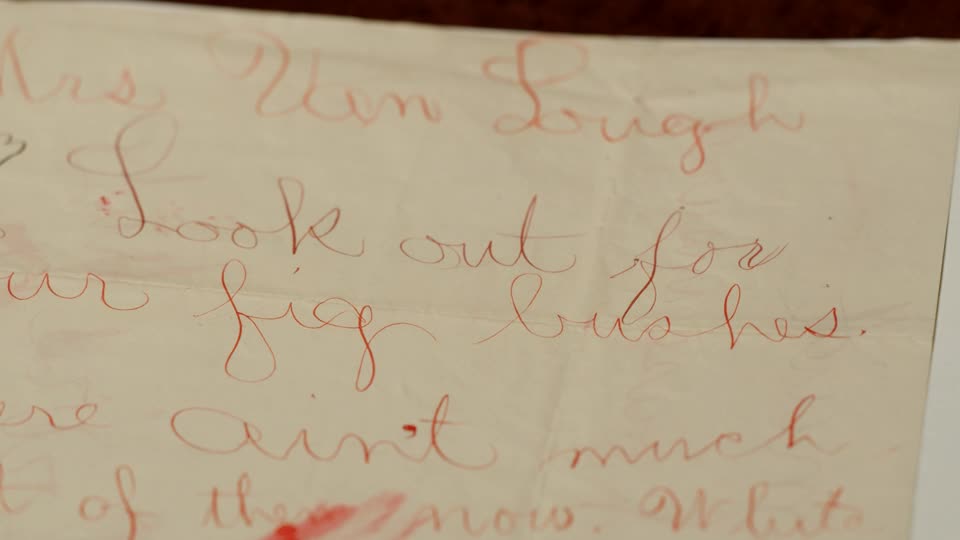 Mrs Ven Lough
Look out for
ur fig bushes.
ere ain't much
t of them now. Whuts